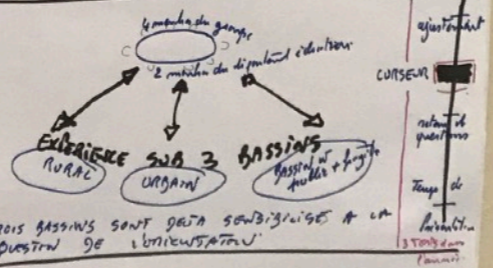 4 membres du groupe
2 membres du
EXPÉRIENCE SUR 3 BASSINS
RURAL
URBAIN
BASSIN
public + fragile
TROIS BASSINS SONT DEJA SENSIBILISÉS A LA
QUESTION DE L'ORIENTATION
ajustement
CURSEUR
retour de
questions
Temps de
3 TEMPS dans
l'année